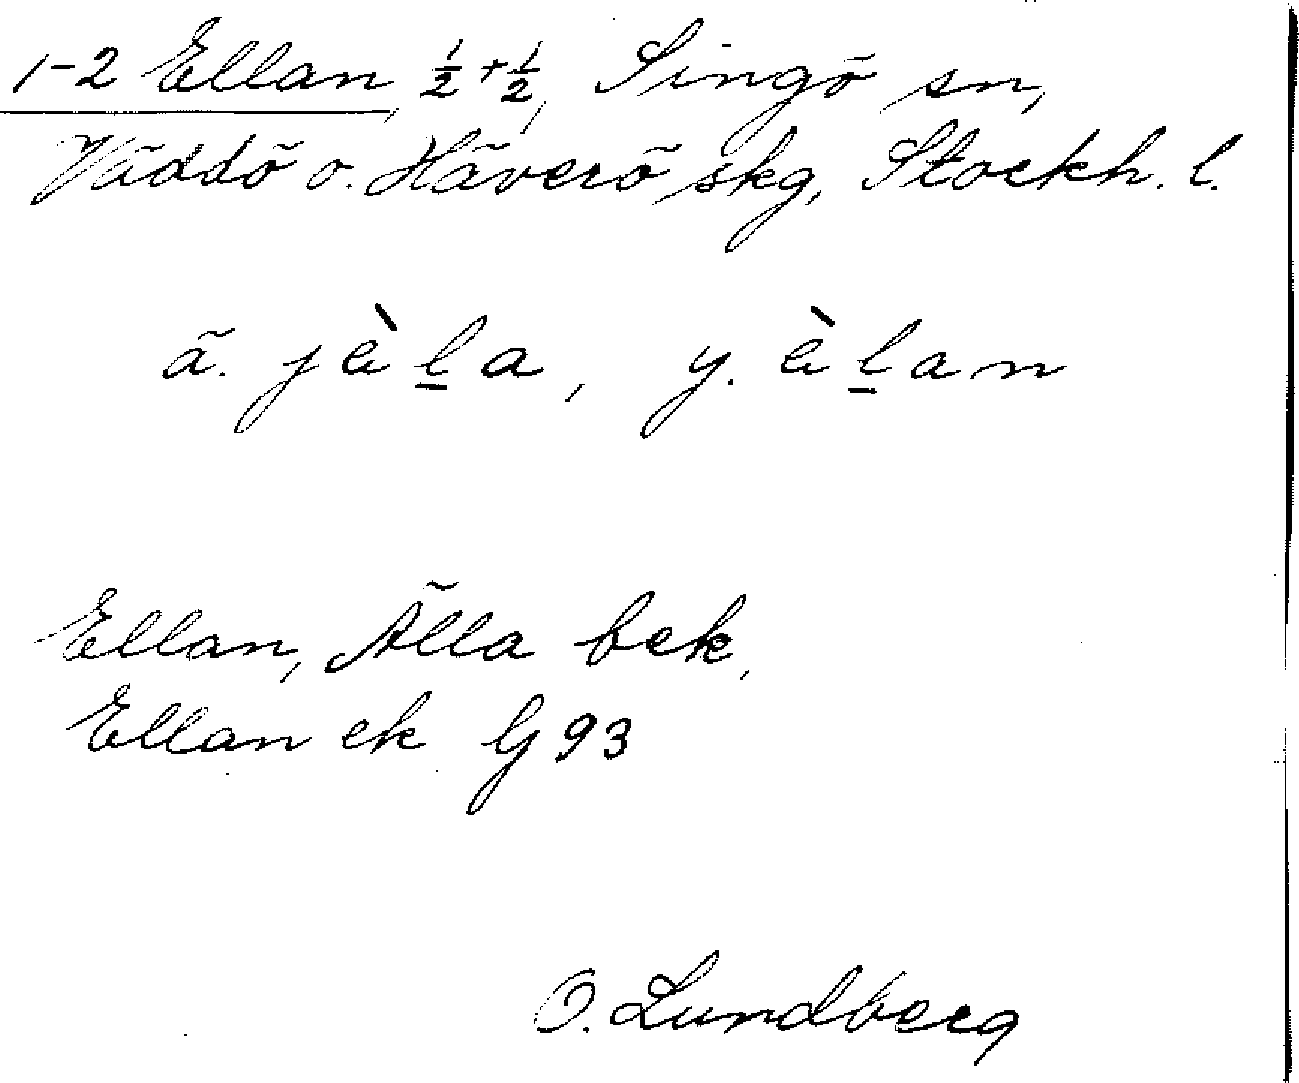 1-2 Ellan, ½ + ½, Singö sn,
Väddö o. Häverö skg, Stockh. l.
ä. jälà, y. älan
Ellan, Älla bek,
Ellan ek Gg 93
O. Lundberg